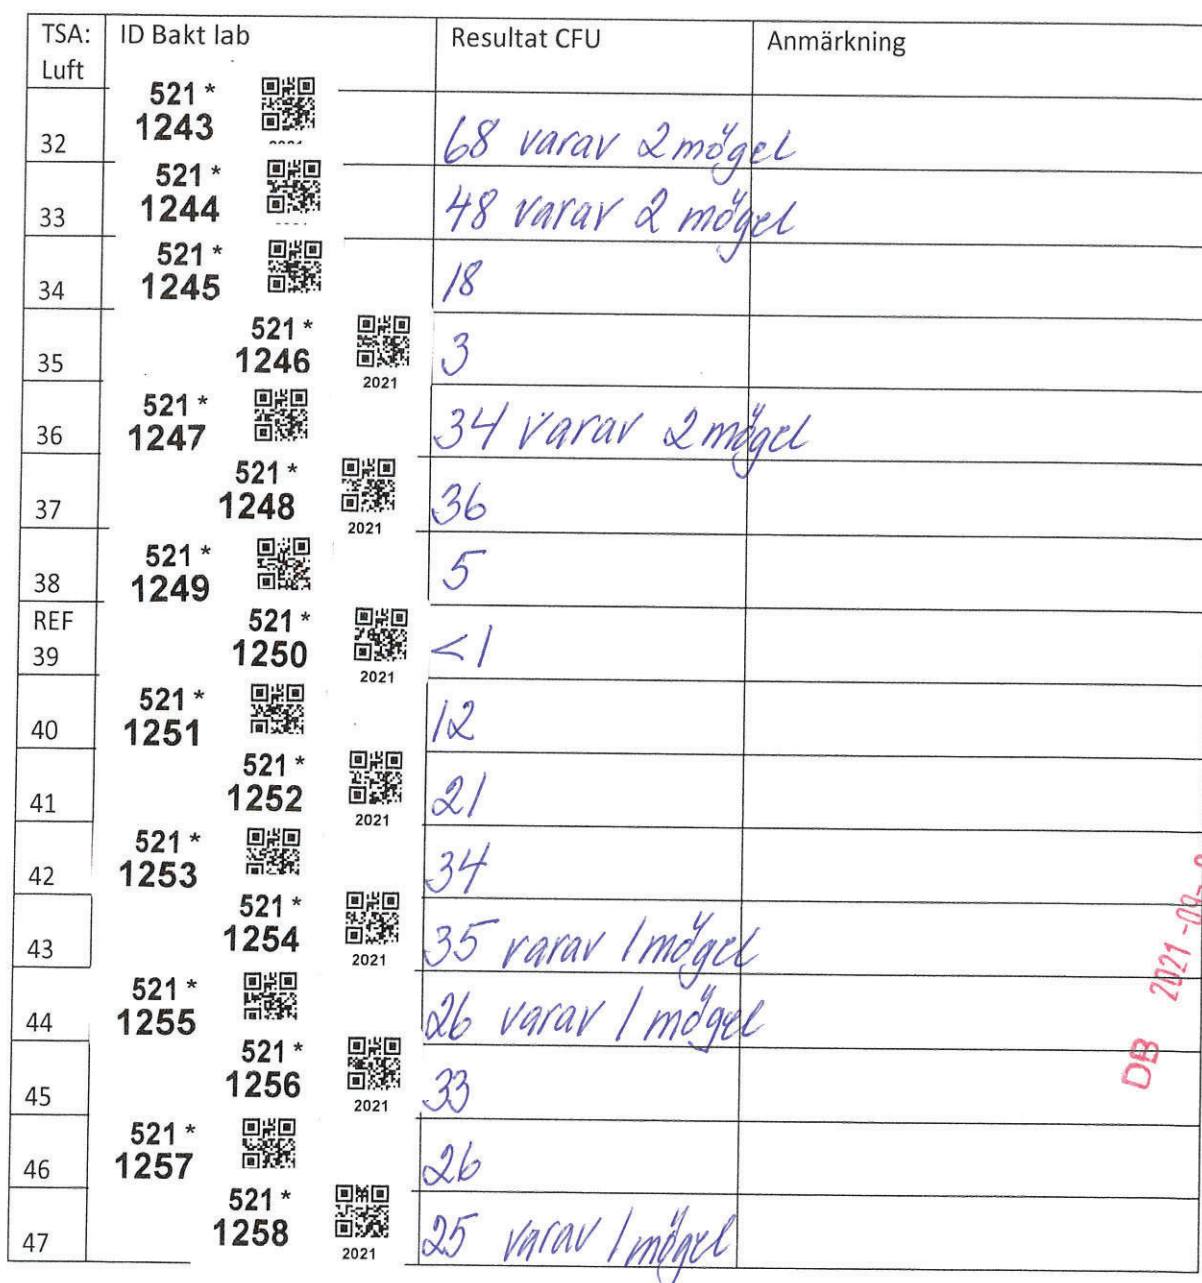 TSA: Luft ID Bakt lab Resultat CFU Anmärkning
32 521 * 1243 68 varav 2 mögel
33 521 * 1244 48 varav 2 mögel
34 521 * 1245 18
35 521 * 1246 2021 3
36 521 * 1247 34 varav 2 mögel
37 521 * 1248 2021 36
38 521 * 1249 5
REF 39 521 * 1250 2021 <1
40 521 * 1251 12
41 521 * 1252 2021 21
42 521 * 1253 34
43 521 * 1254 2021 35 varav 1 mögel
44 521 * 1255 26 varav 1 mögel
45 521 * 1256 2021 33
46 521 * 1257 26
47 521 * 1258 2021 25 varav 1 mögel
DB 2021-09-